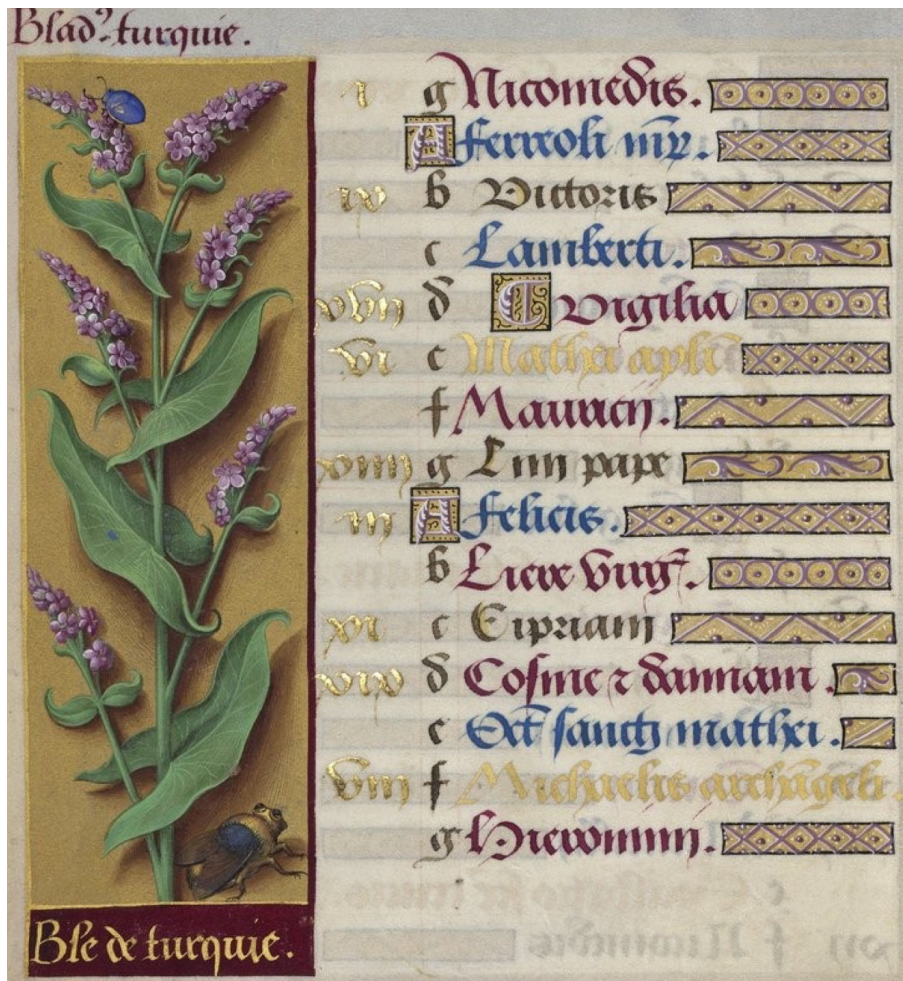 Blad⁹ turquie.
i g Nicomedis.
A ferreoli mr̄.
ix b Victoris
c Lamberti.
xvij d Vigilia
vi e Mathei apl̄i
f Mauricij.
xiiij g Lini pape
iij A felicis.
b Lieve virgī.
xi c Cipriani
xix d Cosme ⁊ damiani.
e Oct̄ sancti mathei.
viij f Michaelis archāgeli.
g Hieronimi.
Ble de turquie.